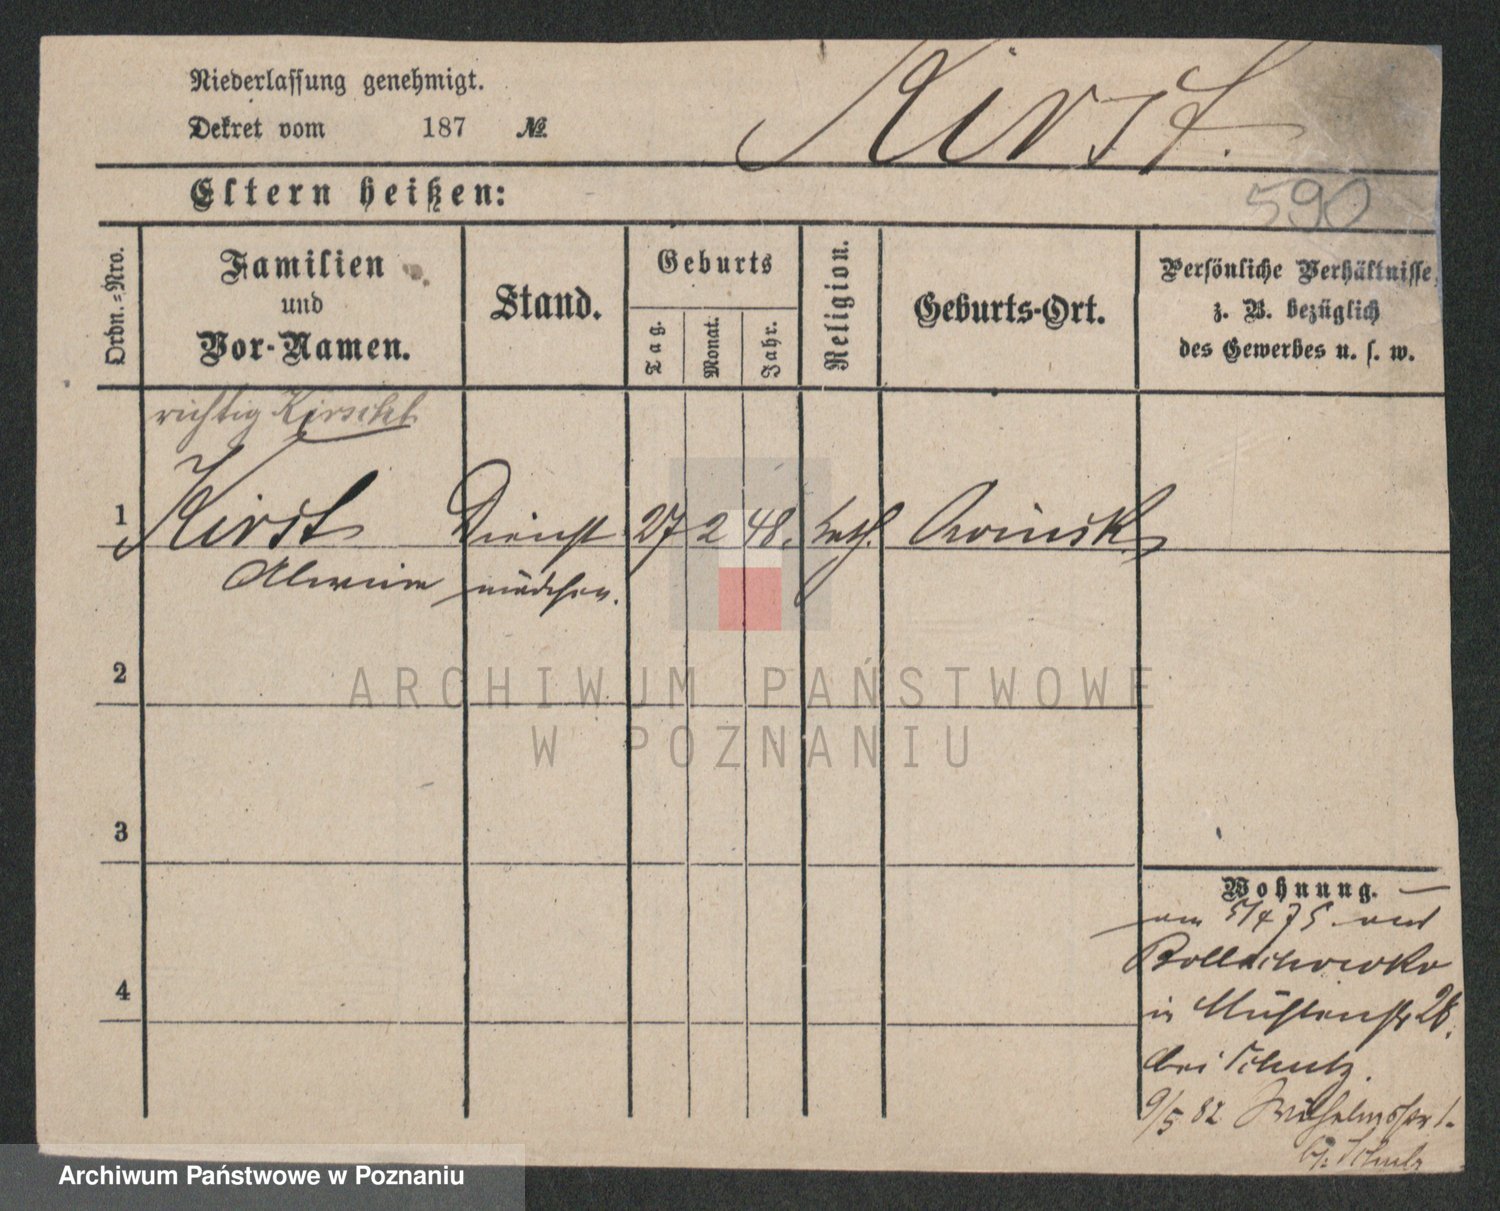 Niederlassung genehmigt.
Dekret vom 187 №
Kirst.
590
Eltern heißen:
Ordn.=Nro.
Familien
und
Vor-Namen.
Stand.
Geburts
Tag.
Monat.
Jahr.
Religion.
Geburts-Ort.
Persönliche Verhältnisse,
z. B. bezüglich
des Gewerbes u. s. w.
richtig
1 Kirst Dienst 27 2 48. kath.
mädchen.
2
ARCHIWUM PAŃSTWOWE
W POZNANIU
3
4
Wohnung.
5/4 75
in Mühlenstr 28.
bei Schulz.
9/5 82 Wilhelmstr 1.
b/: Schulz
Archiwum Państwowe w Poznaniu